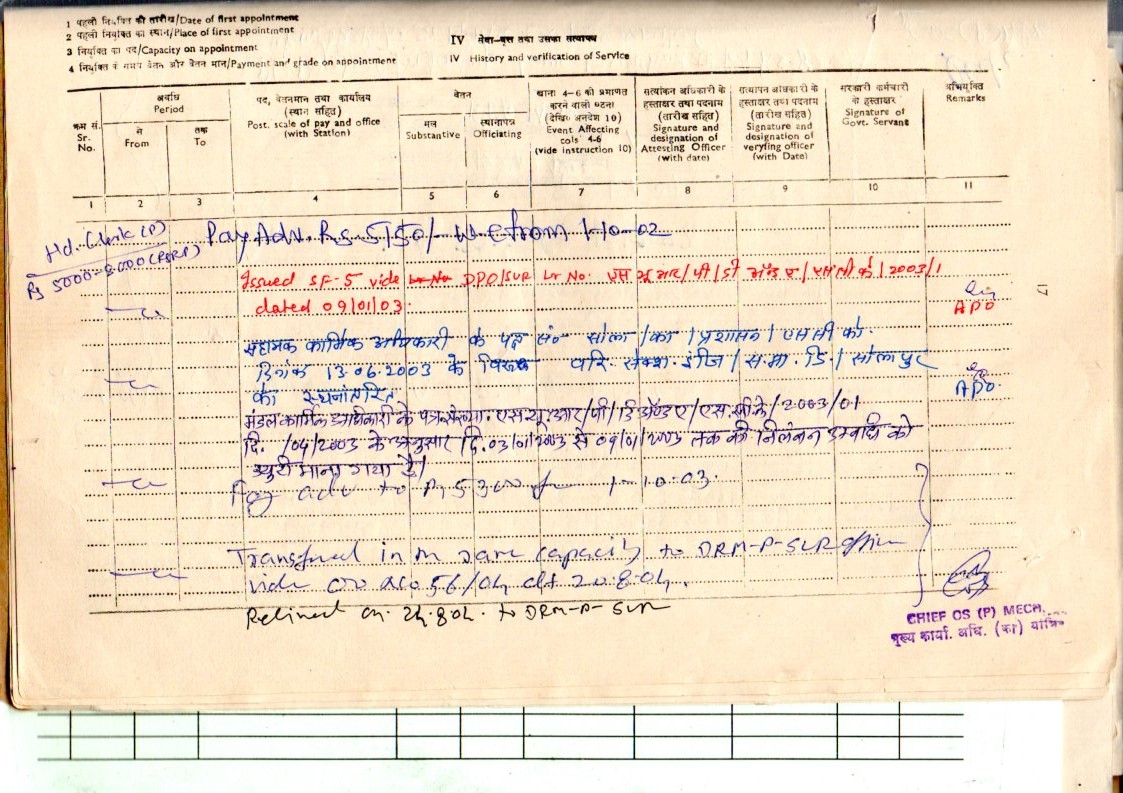 1 पहली नियुक्ति की तारीख/Date of first appointment
2 पहली नियुक्ति का स्थान/Place of first appointment
3 नियुक्ति का पद/Capacity on appointment
4 नियुक्ति के समय वेतन और वेतन मान/Payment and grade on appointment
IV सेवा-वृत्त तथा उसका सत्यापन
IV History and verification of Service
क्रम सं.
Sr.
No.
अवधि
Period
से
From
तक
To
पद, वेतनमान तथा कार्यालय
(स्थान सहित)
Post. scale of pay and office
(with Station)
वेतन
मूल
Substantive
स्थानापन्न
Officiating
खाना 4-6 को प्रमाणित
करने वाली घटना
(देखिए अनदेश 10)
Event Affecting
cols 4-6
(vide instruction 10)
सत्यांकन अधिकारी के
हस्ताक्षर तथा पदनाम
(तारीख सहित)
Signature and
designation of
Attesting Officer
(with date)
सत्यापन अधिकारी के
हस्ताक्षर तथा पदनाम
(तारीख सहित)
Signature and
designation of
veryfing officer
(with Date)
सरकारी कर्मचारी
के हस्ताक्षर
Signature of
Govt. Servant
अभियुक्ति
Remarks
1 2 3 4 5 6 7 8 9 10 11
Hd. Clerk (P)
Rs 5000-8000 (RSRP)
Pay Adv. Rs 5150/- w e from 1-10-02
Issued SF-5 vide Lr No DPO/SUR Lr No. एस यू आर/पी/डी अॅंड ए/एस सी के/2003/1
dated 09/01/03.
APO
17
सहायक कार्मिक अधिकारी के पत्र सं० सोला/का/प्रशासन/एस सी के
दिनांक 13.06.2003 के वरि. सेक्श. इंजि/स.मा. डि/सोलापुर
को स्थानांतरित
APO
मंडल कार्मिक अधिकारी के पत्र संख्या. एस.यू.आर/पी/डि अॅण्ड ए/एस.सी.के/2003/01
दि. /04/2003 के अनुसार दि. 03/01/2003 से 09/01/2003 तक की निलंबन अवधि को
ड्युटी माना गया है।
Pay adv to Rs 5300 1-10-03.
Transfered in same capacity to DRM-P-SUR office
vide oo no 56/04 dt 20.8.04.
Relived on 24.8.04. to DRM-P-SUR
CHIEF OS (P) MECH.
मुख्य कार्या. अधि. (का) यांत्रि